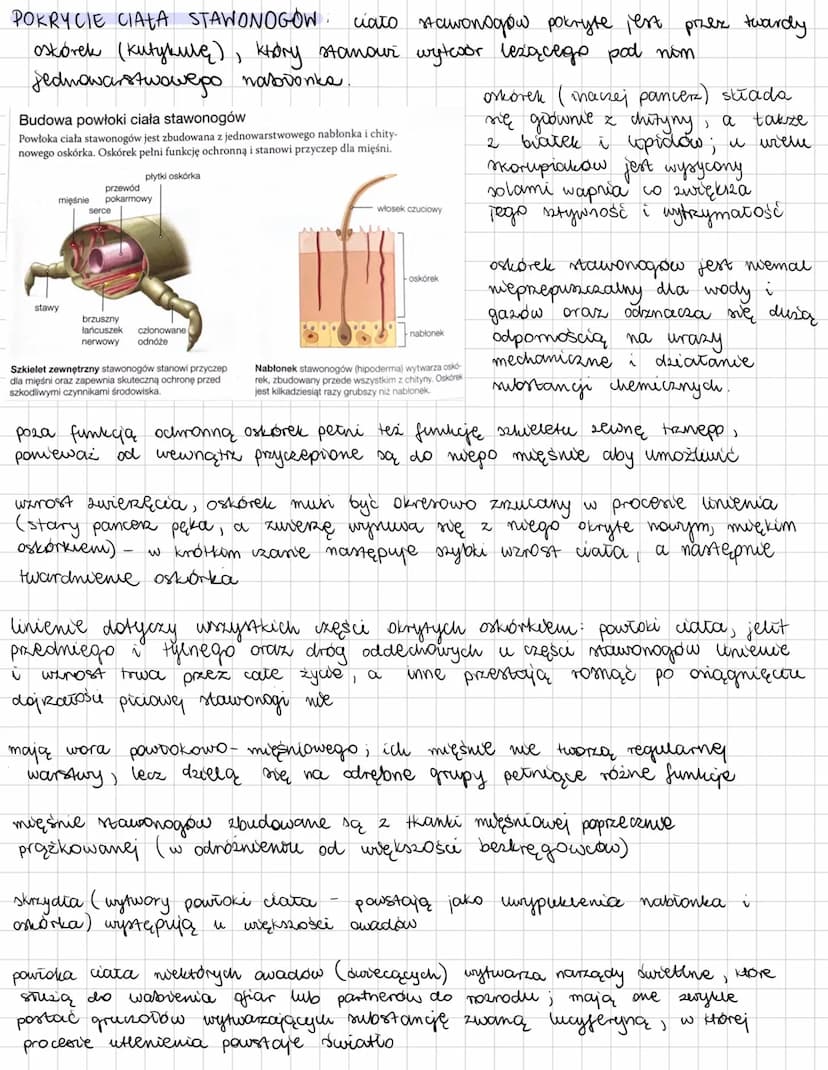 POKRYCIE CIAŁA STAWONOGÓW: ciało stawonogów pokryte jest przez twardy
oskórek (kutykulę), który stanowi wytwór leżącego pod nim
jednowarstwowego nabłonka.
Budowa powłoki ciała stawonogów
Powłoka ciała stawonogów jest zbudowana z jednowarstwowego nabłonka i chity-
nowego oskórka. Oskórek pełni funkcję ochronną i stanowi przyczep dla mięśni.
płytki oskórka
przewód
pokarmowy
mięśnie
serce
stawy
brzuszny
łańcuszek
nerwowy
członowane
odnóże
włosek czuciowy
oskórek
nabłonek
Szkielet zewnętrzny stawonogów stanowi przyczep
dla mięśni oraz zapewnia skuteczną ochronę przed
szkodliwymi czynnikami środowiska.
Nabłonek stawonogów (hipoderma) wytwarza oskó-
rek, zbudowany przede wszystkim z chityny. Oskórek
jest kilkadziesiąt razy grubszy niż nabłonek.
oskórek (inaczej pancerz) składa
się głównie z chityny, a także
z białek i lipidów; u wielu
skorupiaków jest wysycony
solami wapnia co zwiększa
jego sztywność i wytrzymałość
oskórek stawonogów jest niemal
nieprzepuszczalny dla wody i
gazów oraz odznacza się dużą
odpornością na urazy
mechaniczne i działanie
substancji chemicznych.
poza funkcją ochronną oskórek pełni też funkcję szkieletu zewnętrznego,
ponieważ od wewnątrz przyczepione są do niego mięśnie aby umożliwić
wzrost zwierzęcia, oskórek musi być okresowo zrzucany w procesie linienia
(stary pancerz pęka, a zwierzę wysuwa się z niego okryte nowym, miękim
oskórkiem) - w krótkim czasie następuje szybki wzrost ciała, a następnie
twardnienie oskórka
linienie dotyczy wszystkich części okrytych oskórkiem: powłoki ciała, jelit
przedniego i tylnego oraz dróg oddechowych u części stawonogów linienie
i wzrost trwa przez całe życie, a inne przestają rosnąć po osiągnięciu
dojrzałości płciowej stawonogi nie
mają wora powłokowo-mięśniowego; ich mięśnie nie tworzą regularnej
warstwy, lecz dzielą się na odrębne grupy pełniące różne funkcje
mięśnie stawonogów zbudowane są z tkanki mięśniowej poprzecznie
prążkowanej (w odróżnieniu od większości bezkręgowców)
skrzydła (wytwory powłoki ciała - powstają jako uwypuklenia nabłonka i
oskórka) występują u większości owadów
powłoka ciała niektórych owadów (świecących) wytwarza narządy świetlne, które
służą do wabienia ofiar lub partnerów do rozrodu; mają one zwykle
postać gruczołów wytwarzających substancję zwaną lucyferyną, w której
procesie utlenienia powstaje światło